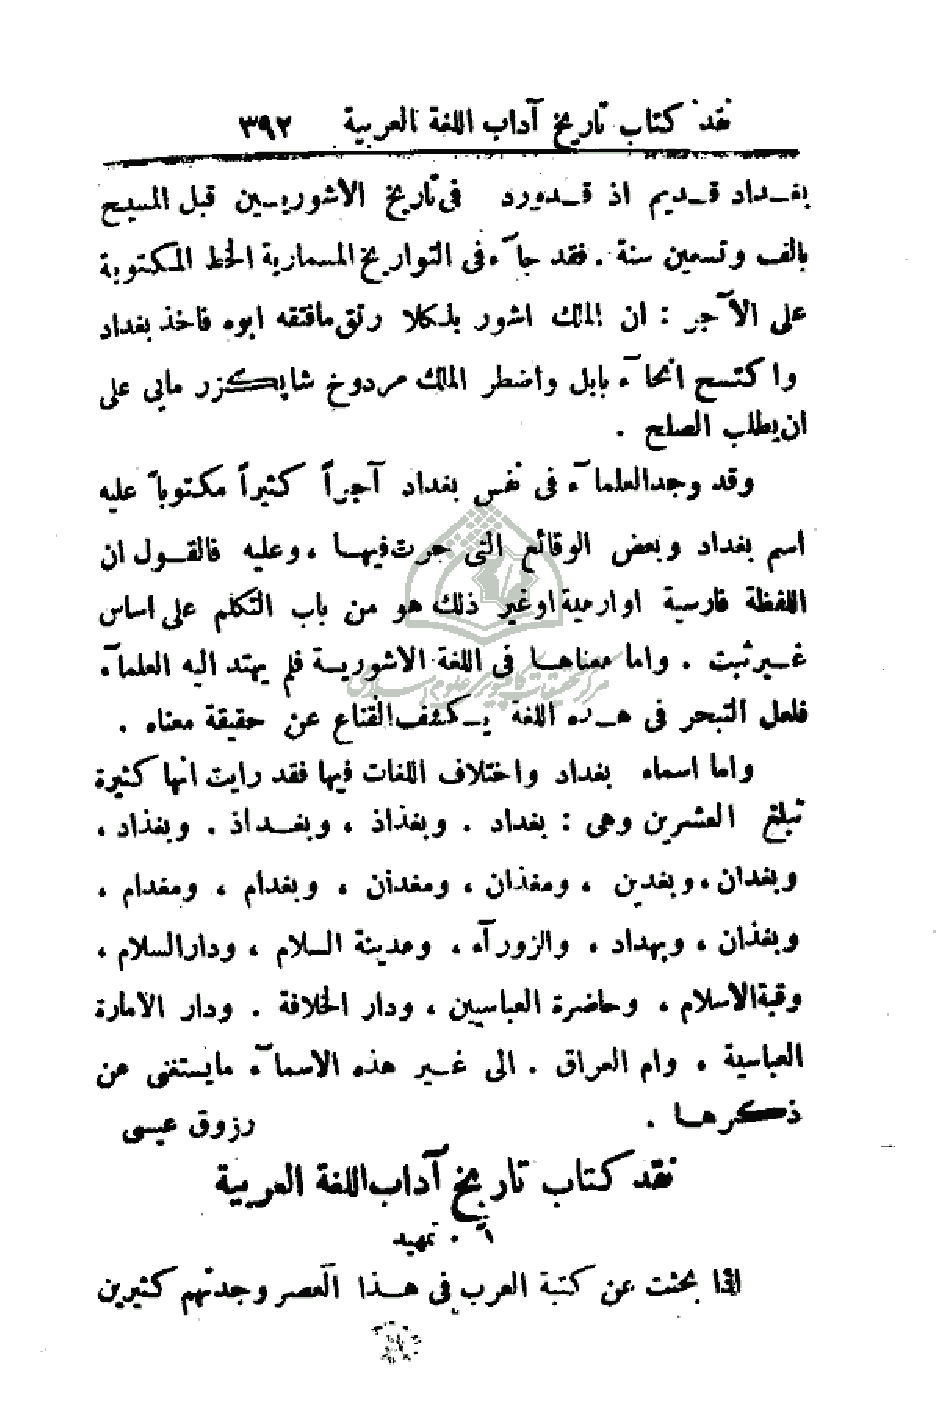 نقد كتاب تاريخ آداب اللغة العربية ٣٩٢
بغـداد قـديم اذ قـدورد فى تاريخ الاشوريـين قبل المسيح
بالف وتسعين سنة . فقد جآء فى التواريخ المسمارية الخط المكتوبة
على الآجر : ان الملك اشور بلكلا رتق مافتقه ابوه فاخذ بغداد
واكتسح انحآء بابل واضطر الملك مردوخ شابكزر مابى على
ان يطلب الصلح .
وقد وجدالعلمآء فى نفس بغداد آجراً كثيراً مكتوباً عليه
اسم بغداد وبعض الوقائع التى جرت فيهـا ، وعليه فالقـول ان
اللفظة فارسية اوارمية اوغير ذلك هو من باب التكلم على اساس
غـير ثبت . واما معناهـا فى اللغة الاشوريـة فلم يهتد اليه العلمآء
فلعل التبحر فى هـذه اللغة يـكشف القناع عن حقيقة معناه .
واما اسماء بغداد واختلاف اللغات فيها فقد رايت انها كثيرة
تبلغ العشرين وهى : بغداد . وبغذاذ ، وبغـداذ . وبغذاد ،
وبغدان ، وبغدين ، ومغذان ، ومغدان ، وبغدام ، ومغدام ،
وبغذان ، وبهداد ، والزورآء ، ومدينة السلام ، ودارالسلام ،
وقبةالاسلام ، وحاضرة العباسيين ، ودار الخلافة . ودار الامارة
العباسية ، وام العراق . الى غـير هذه الاسمآء مايستغنى عن
ذكرهـا .
رزوق عيسى
نقد كتاب تاريخ آداب اللغة العربية
١ . تمهيد
اذا بحثت عن كتبة العرب فى هـذا العصر وجدتهم كثيرين